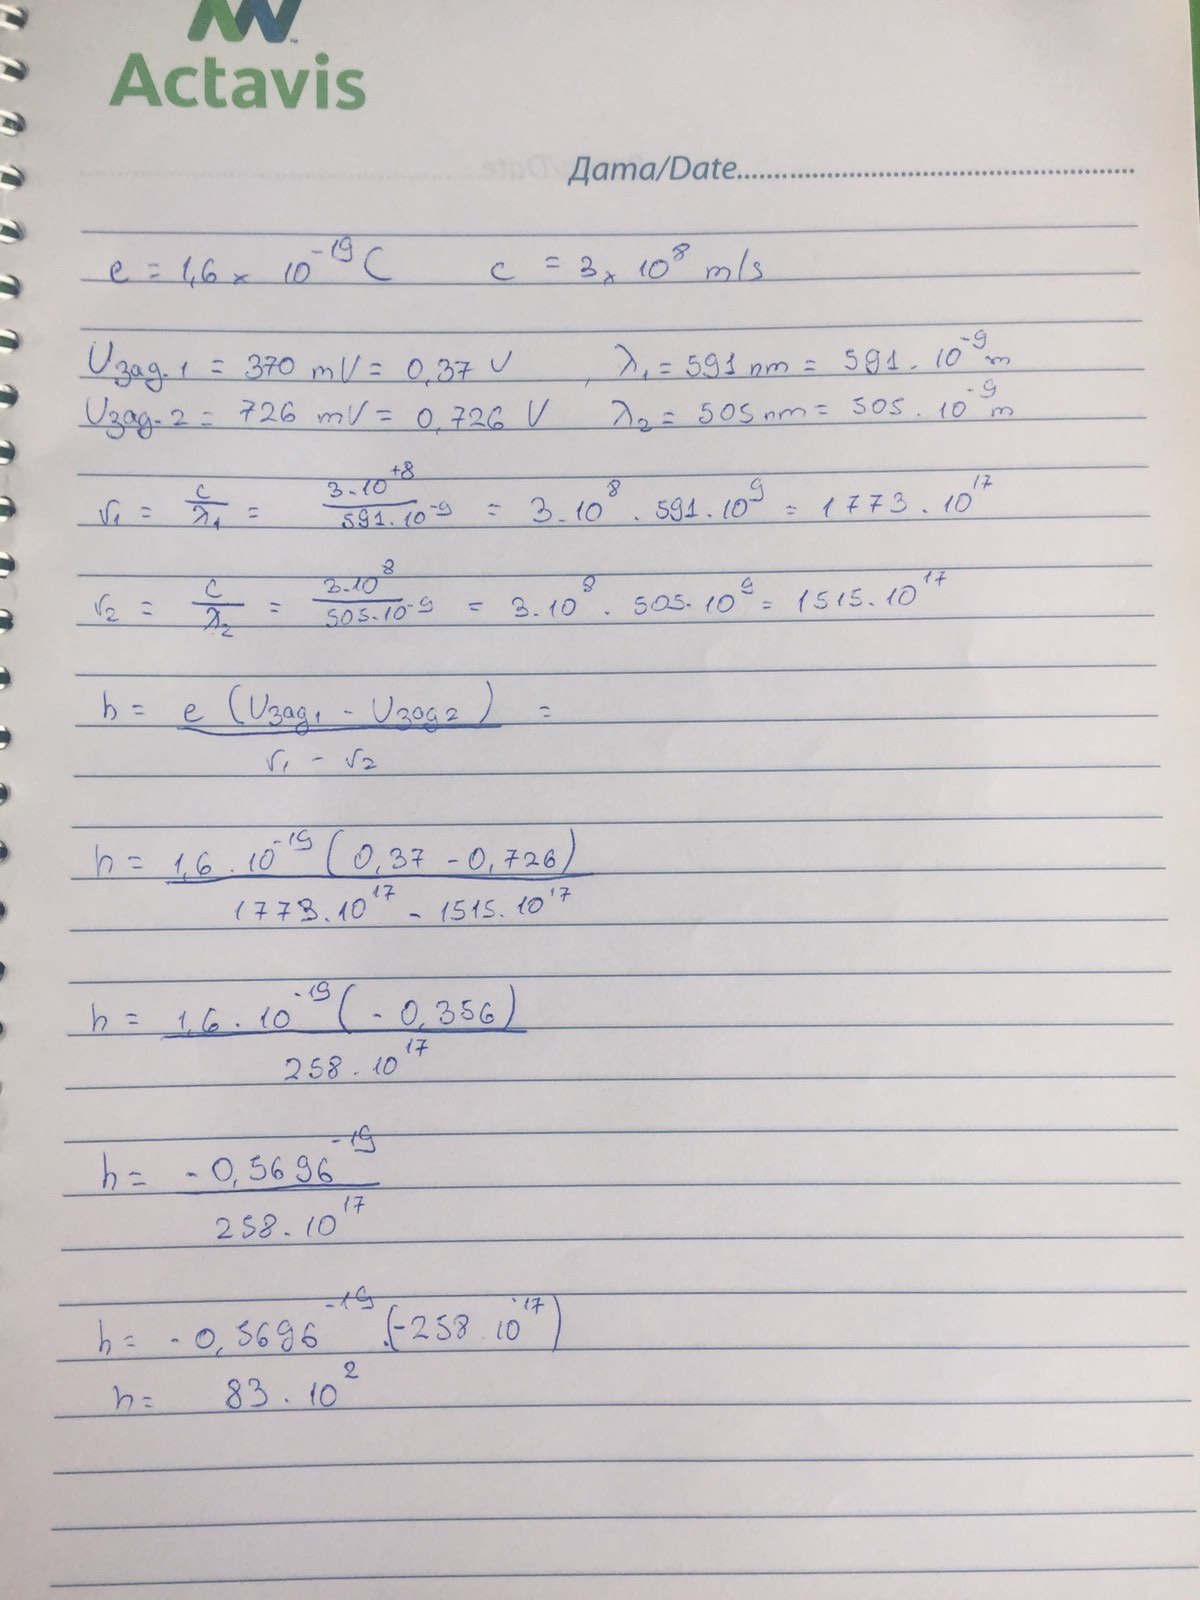 Actavis
Дата/Date
e = 1,6 × 10⁻¹⁹ C c = 3 × 10⁸ m/s
Uзад.1 = 370 mV = 0,37 V , λ₁ = 591 nm = 591 . 10⁻⁹ m
Uзад.2 = 726 mV = 0,726 V λ₂ = 505 nm = 505 . 10⁻⁹ m
ν₁ = c/λ₁ = 3.10⁺⁸/591.10⁻⁹ = 3.10⁸ . 591.10⁹ = 1773.10¹⁷
ν₂ = c/λ₂ = 3.10⁸/505.10⁻⁹ = 3.10⁸ . 505.10⁹ = 1515.10¹⁷
h = e (Uзад₁ - Uзад2) / ν₁ - ν₂ =
h = 1,6 . 10⁻¹⁹ (0,37 - 0,726) / 1773.10¹⁷ - 1515.10¹⁷
h = 1,6 . 10⁻¹⁹ (- 0,356) / 258 . 10¹⁷
h = - 0,5696⁻¹⁹ / 258 . 10¹⁷
h = - 0,5696⁻¹⁹ .(-258 . 10⁻¹⁷)
h = 83 . 10²